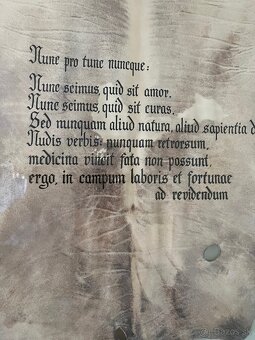 Nunc pro tunc nuncque:
Nunc scimus, quid sit amor.
Nunc scimus, quid sit curas,
Sed nunquam aliud natura, aliud sapientia d
Nudis verbis nunquam retrorsum,
medicina vincit fata non possunt,
ergo, in campum laboris et fortunae
ad revidendum